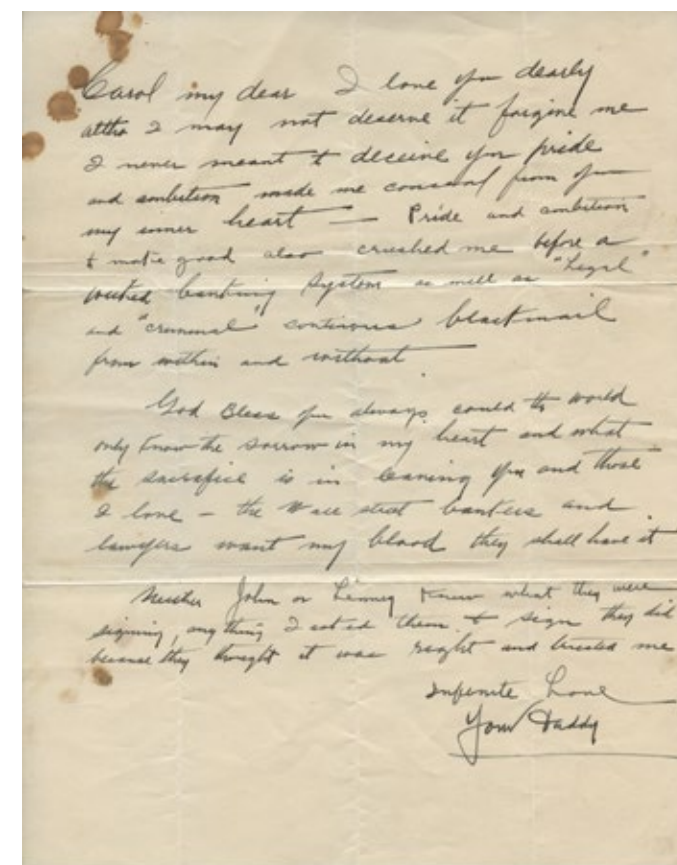 Carol my dear I love you dearly
altho I may not deserve it forgive me
I never meant to deceive you pride
and ambition made me conceal from you
my inner heart — Pride and ambition
to make good also crushed me before a
wicked banking system as well as "legal"
and "criminal" continous blackmail
from within and without
God Bless you always could the world
only know the sorrow in my heart and what
the sacrifice is in leaving you and those
I love – the Wall street bankers and
lawyers want my blood they shall have it
Neither John or knew what they were
signing, anything I asked them to sign they did
because they thought it was right and trusted me
Infinite Love
Your Daddy